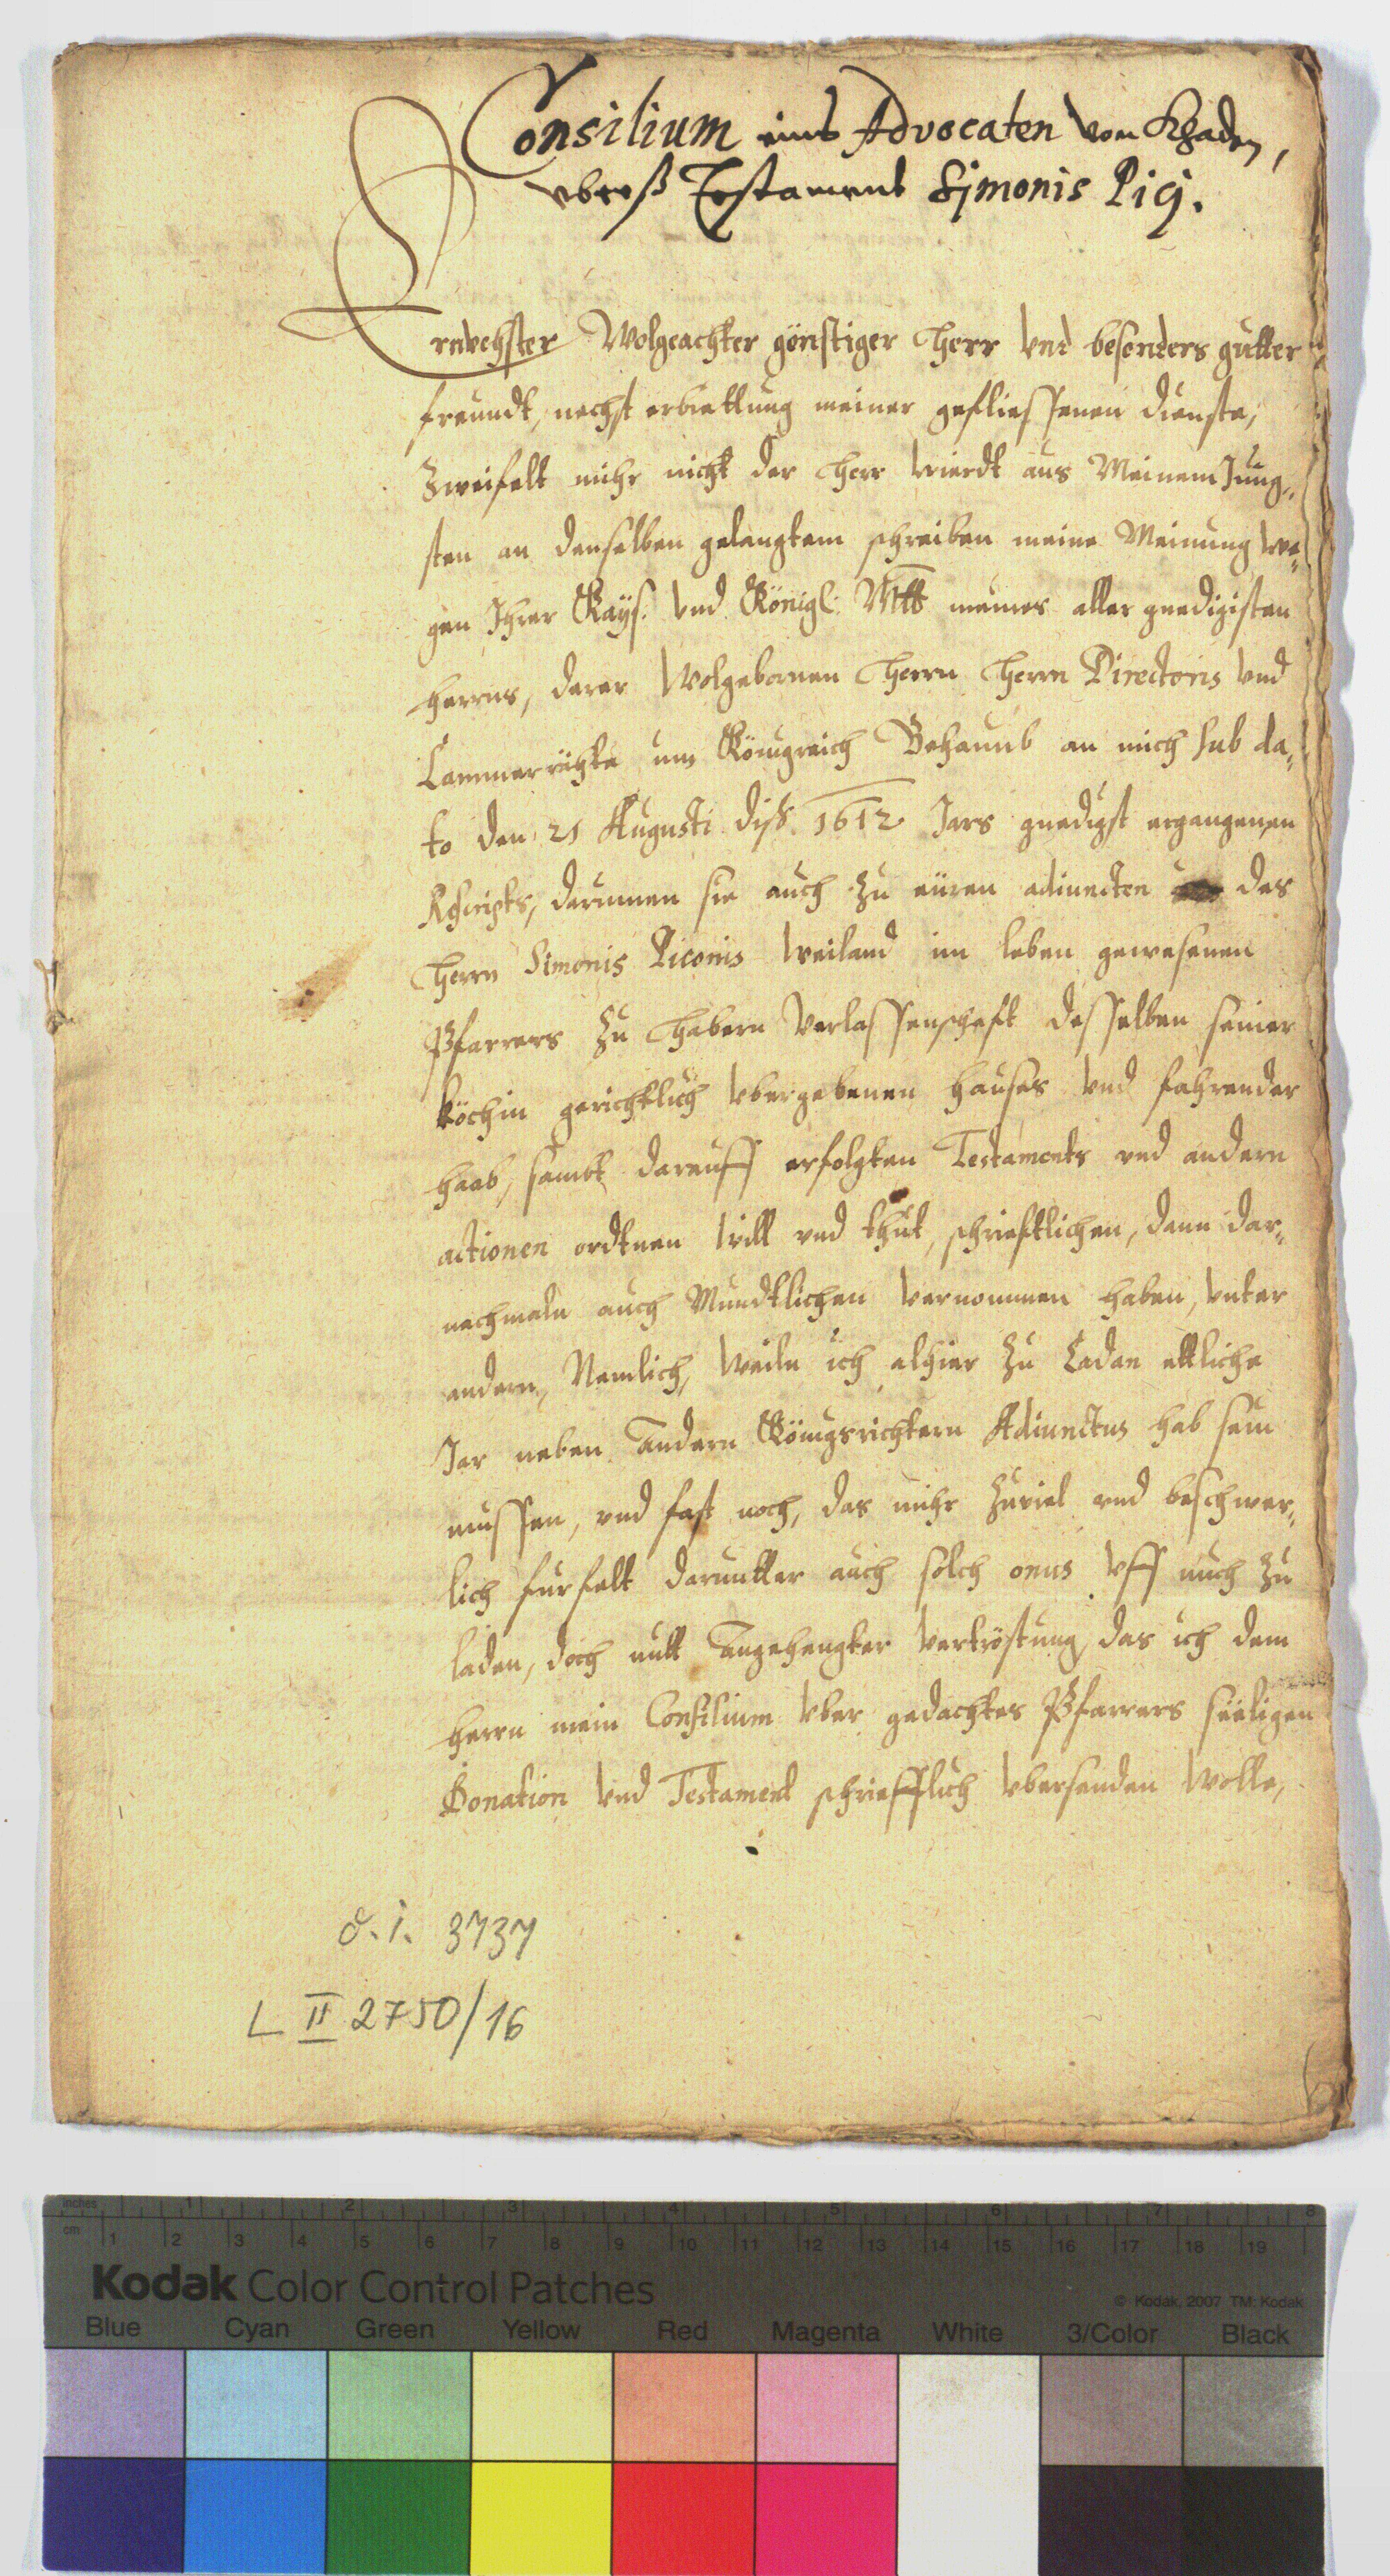 Consilium eines Advocaten von Khaden,
vbers Testament Simonis Picj.
Ernvehster Wolgeachter gönstiger Herr vnd besonders gutter
freundt, nechst erbiettung meiner gefliessenen dienste,
Zweifelt mihr nicht der Herr wierdt aus Meinem Jung„
sten an denselben gelangtem schreiben meine Meinung we„
gen Ihrer Kays. vnd Königl. Mtt meines aller gnedigisten
herrns, derer Wolgebornen Herrn Herrn Directoris vnd
Cammerrähte im Königreich Behaimb an mich sub da„
to den 21 Augusti diß 1612 Jars gnedigst ergangenen
Rescripts, darinnen sie auch zu einen adiuncten des
Herrn Simonis Piconis weiland im leben gewesenen
Pfarrers zu Habern Verlassenschaft desselben seiner
köchin gerichtlich vbergebenen hauses vnd fahrender
haab, sambt darauff erfolgten Testaments vnd andern
actionen ordtnen will vnd thut, schrieftlichen, dann dar„
nachmaln auch Mundtlichen vernommen haben, vnter
andern, Nemlich, weiln ich alhier zu Cadan ettliche
Jar neben andern Königsrichtern Adiunctus hab sein
mussen, vnd fast noch, das mihr zuviel vnd beschwer„
lich furfelt daruntter auch solch onus vff mich zu
laden, doch mitt angehengter vertröstung, das ich dem
herrn mein Consilium vber gedachtes Pfarrers seeligen
Donation vnd Testament schriefftlich vbersenden wolle,
č. i. 3737
L II 2750/16
inches 1 2 3 4 5 6 7 8
cm 1 2 3 4 5 6 7 8 9 10 11 12 13 14 15 16 17 18 19
Kodak Color Control Patches
© Kodak, 2007 TM: Kodak
Blue Cyan Green Yellow Red Magenta White 3/Color Black